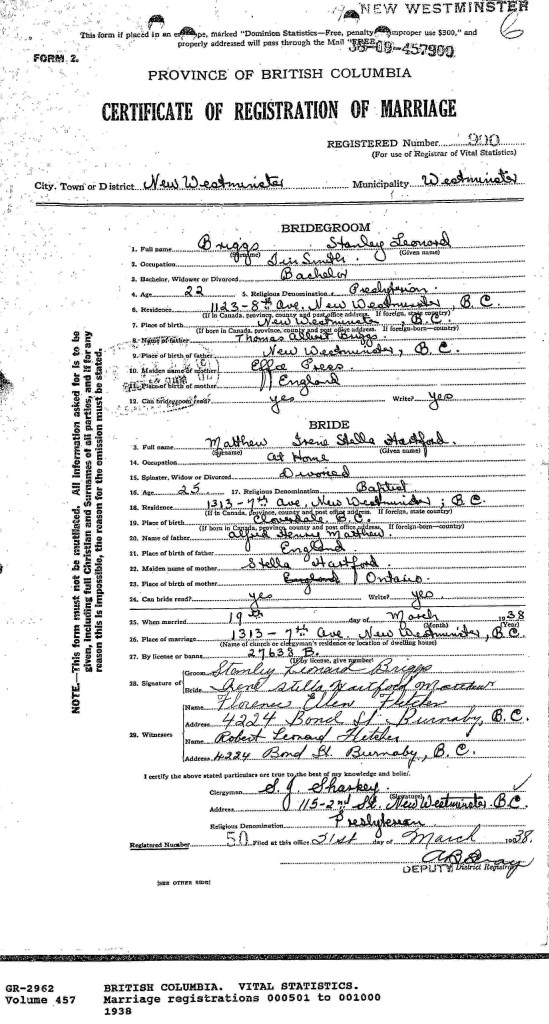 NEW WESTMINSTER
6
This form if placed in an envelope, marked "Dominion Statistics—Free, penalty improper use $300," and
properly addressed will pass through the Mail "FREE."
38-09-457900
FORM 2.
PROVINCE OF BRITISH COLUMBIA
CERTIFICATE OF REGISTRATION OF MARRIAGE
REGISTERED Number 900
(For use of Registrar of Vital Statistics)
City, Town or District New Westminster Municipality Westminster
BRIDEGROOM
1. Full name Briggs Stanley Leonard
(Surname) (Given name)
2. Occupation Tin Smith
3. Bachelor, Widower or Divorced Bachelor
4. Age 22 5. Religious Denomination Presbyterian
6. Residence 1123-8th Ave, New Westminster, B.C.
(If in Canada, province, county and post office address. If foreign, state country)
7. Place of birth New Westminster, B.C.
(If born in Canada, province, county and post office address. If foreign-born—country)
8. Name of father Thomas Albert Briggs
9. Place of birth of father New Westminster, B.C.
10. Maiden name of mother Effee Press
11. Place of birth of mother England
12. Can bridegroom read? yes Write? yes
BRIDE
3. Full name Matthew Irene Stella Hartford
(Surname) (Given name)
14. Occupation At Home
15. Spinster, Widow or Divorced Divorced
16. Age 25 17. Religious Denomination Baptist
18. Residence 1313-7th Ave, New Westminster; B.C.
(If in Canada, province, county and post office address. If foreign, state country)
19. Place of birth Cloverdale B.C.
(If born in Canada, province, county and post office address. If foreign-born—country)
20. Name of father Alfred Henry Matthew.
21. Place of birth of father England
22. Maiden name of mother Stella Hartford
23. Place of birth of mother England / Ontario
24. Can bride read? yes Write? yes
25. When married 19th day of March 1938
(Month) (Year)
26. Place of marriage 1313-7th Ave. New Westminster, B.C.
(Name of church or clergyman's residence or location of dwelling house)
27. By license or banns 27638 B.
(If by license, give number)
28. Signature of Groom Stanley Leonard Briggs
Bride Irene Stella Hartford Matthew
29. Witnesses Name Florence Ellen Fletcher
Address 4224 Bond St Burnaby, B.C.
Name Robert Leonard Fletcher
Address 4224 Bond St. Burnaby, B.C.
I certify the above stated particulars are true to the best of my knowledge and belief.
Clergyman S. J. Sharkey
(Signature)
Address 115-2nd St. New Westminster B.C.
Religious Denomination Presbyterian
Registered Number 50 Filed at this office 21st day of March 1938.
DEPUTY District Registrar
[SEE OTHER SIDE]
NOTE.—This form must not be mutilated. All information asked for is to be
given, including full Christian and Surnames of all parties, and if for any
reason this is impossible, the reason for the emission must be stated.
GR-2962 BRITISH COLUMBIA. VITAL STATISTICS.
Volume 457 Marriage registrations 000501 to 001000
1938